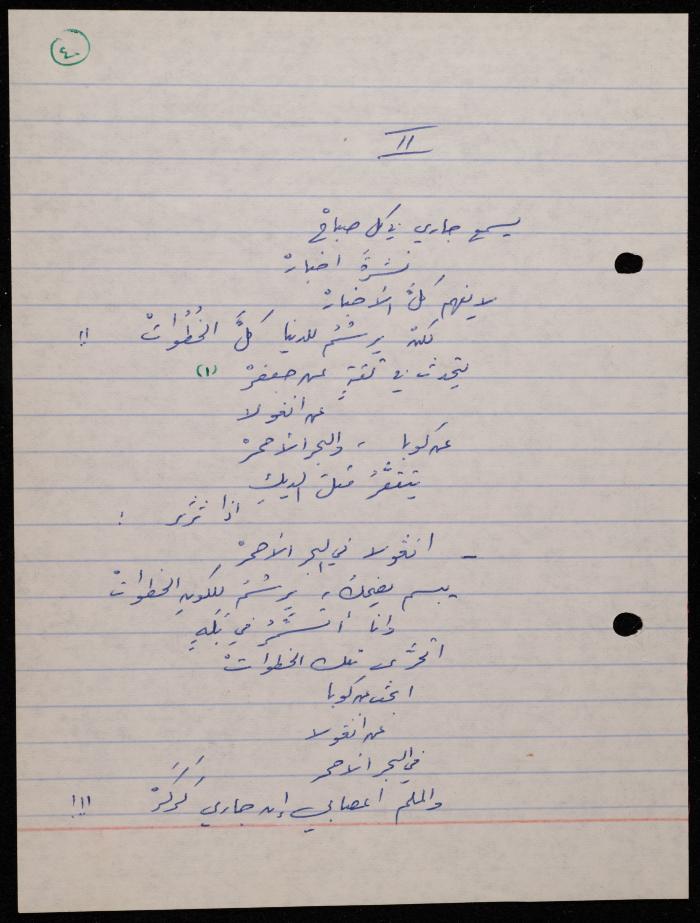 ٤
II
يسمع جاري في كل صباحْ
نشرةَ اخبارْ
لا يفهم كلَّ الأخبارْ
لكنْ يرسُمُ للدنيا كلَّ الخُطُواتْ !!
يتحدث في ثقةٍ عن جعفرْ (١)
عن انغولا
عن كوبا ، والبحر الأحمرْ
مثلَ الديكِ
اذا ثرثر :
ـ انغولا في البحر الأحمرْ
يبسم يضحك ، يرسُمُ للكونِ الخطواتْ
وانا أتستَّرُ في بَلَهٍ
اتحرَّى تلك الخطواتْ
ابحث عن كوبا
عن انغولا
في البحر الأحمر
والملم اعصابي إن جاري كَركَرْ !!!